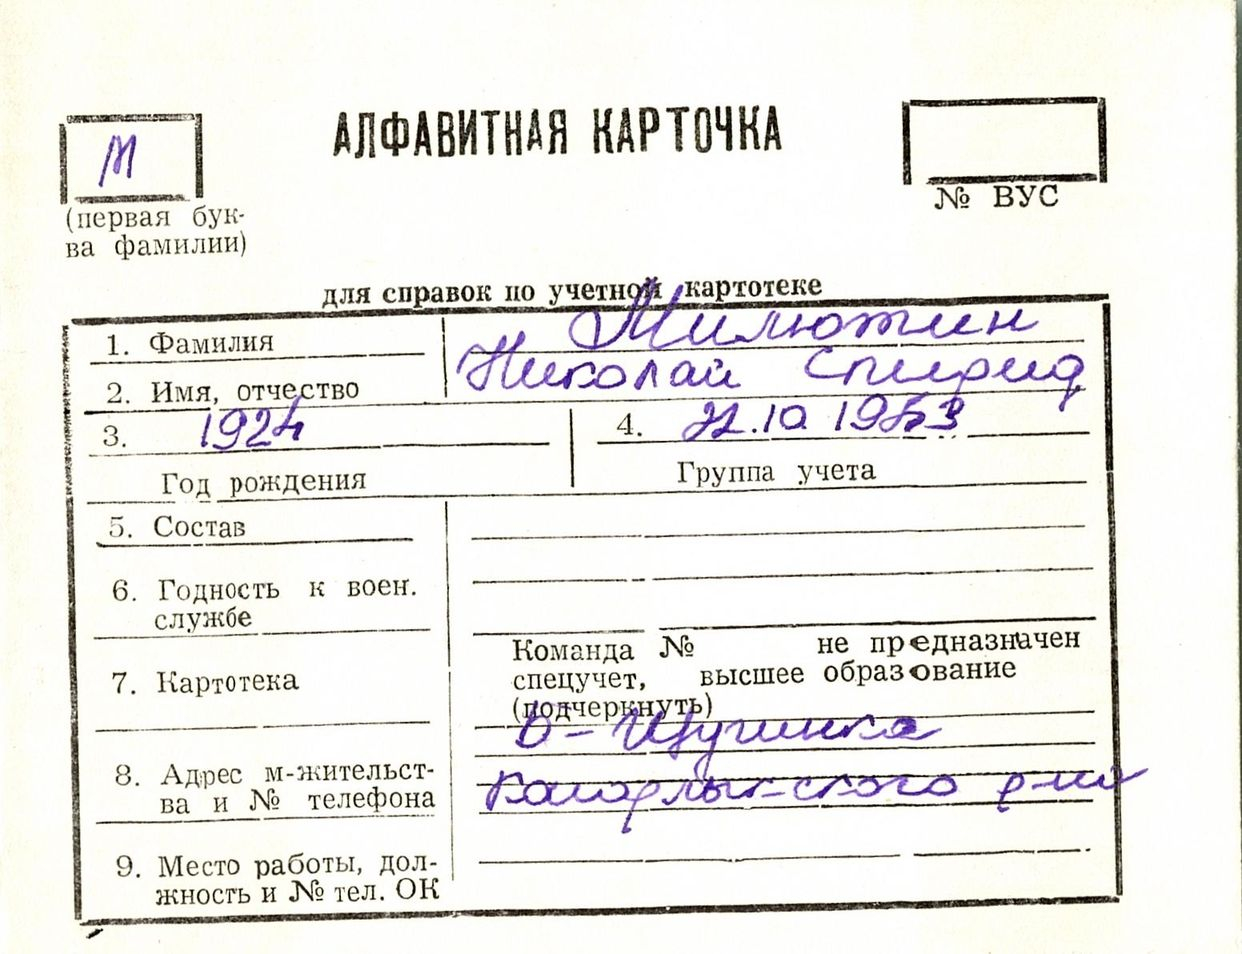 АЛФАВИТНАЯ КАРТОЧКА
М
(первая бук-
ва фамилии)
№ ВУС
для справок по учетной картотеке
1. Фамилия Милютин
2. Имя, отчество Николай Спирид
3. 1924
Год рождения
4. 22.10 1953
Группа учета
5. Состав
6. Годность к воен.
службе
7. Картотека
Команда № не предназначен
спецучет, высшее образование
(подчеркнуть)
8. Адрес м-жительст-
ва и № телефона
Щучинка
Кагарлыкского р-на
9. Место работы, дол-
жность и № тел. ОК